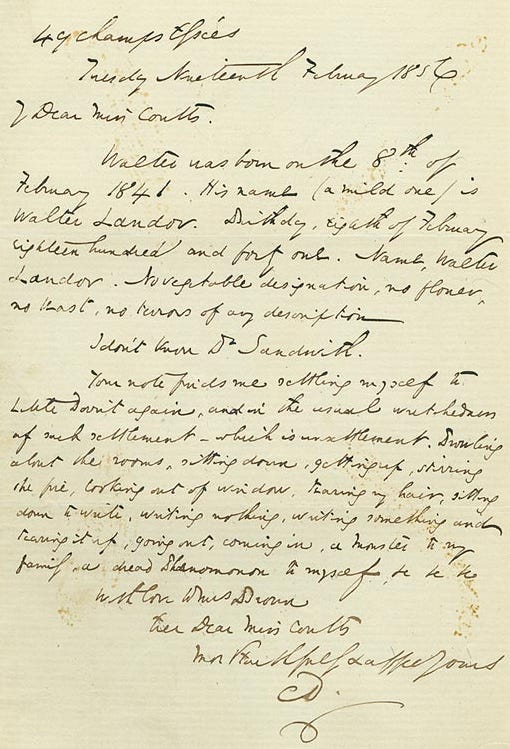 49 Champs Elysées
Tuesday Nineteenth February 1856
My Dear Miss Coutts.
Walter was born on the 8th of
February 1841. His name (a mild one) is
Walter Landor. Birthday, Eighth of February
Eighteen hundred and forty one. Name, Walter
Landor. No vegetable designation, no flower,
no beast, no terrors of any description
I don't know Dr Sandwith.
Your note finds me settling myself to
Little Dorrit again, and in the usual wretchedness
of such settlement - which is unsettlement. Prowling
about the rooms, sitting down, getting up, stirring
the fire, looking out of window, tearing my hair, sitting
down to write, writing nothing, writing something and
tearing it up, going out, coming in, a Monster to my
family, a dread Phenomenon to myself, &c &c &c
With love to Mrs Brown
Ever Dear Miss Coutts
Most Faithfully & affecy Yours
CD.